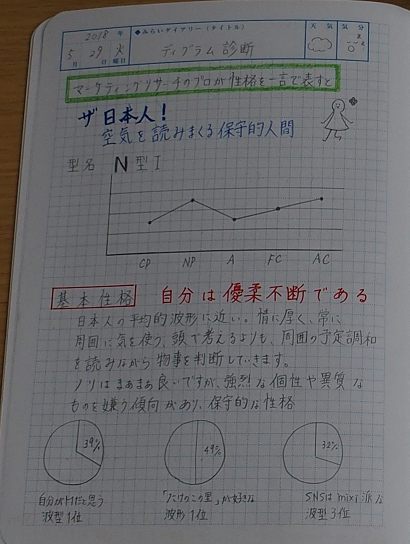 2018 年
5 月 29 日 火 曜日
●みらいダイアリー(タイトル)
ディグラム診断
天気 気分
マーケティングリサーチのプロが性格を一言で表すと
ザ日本人!
空気を読みまくる保守的人間
型名 N型I
CP NP A FC AC
基本性格 自分は優柔不断である
日本人の平均的波形に近い。情に厚く、常に
周囲に気を使う、頭で考えるよりも、周囲の予定調和
を読みながら物事を判断していきます。
ノリはまあまあ良いですが、強烈な個性や異質な
ものを嫌う傾向があり、保守的な性格
39% 49% 32%
自分がMだと思う
波型1位
「たけのこの里」が好きな
波形1位
SNSはmixi派な
波型3位